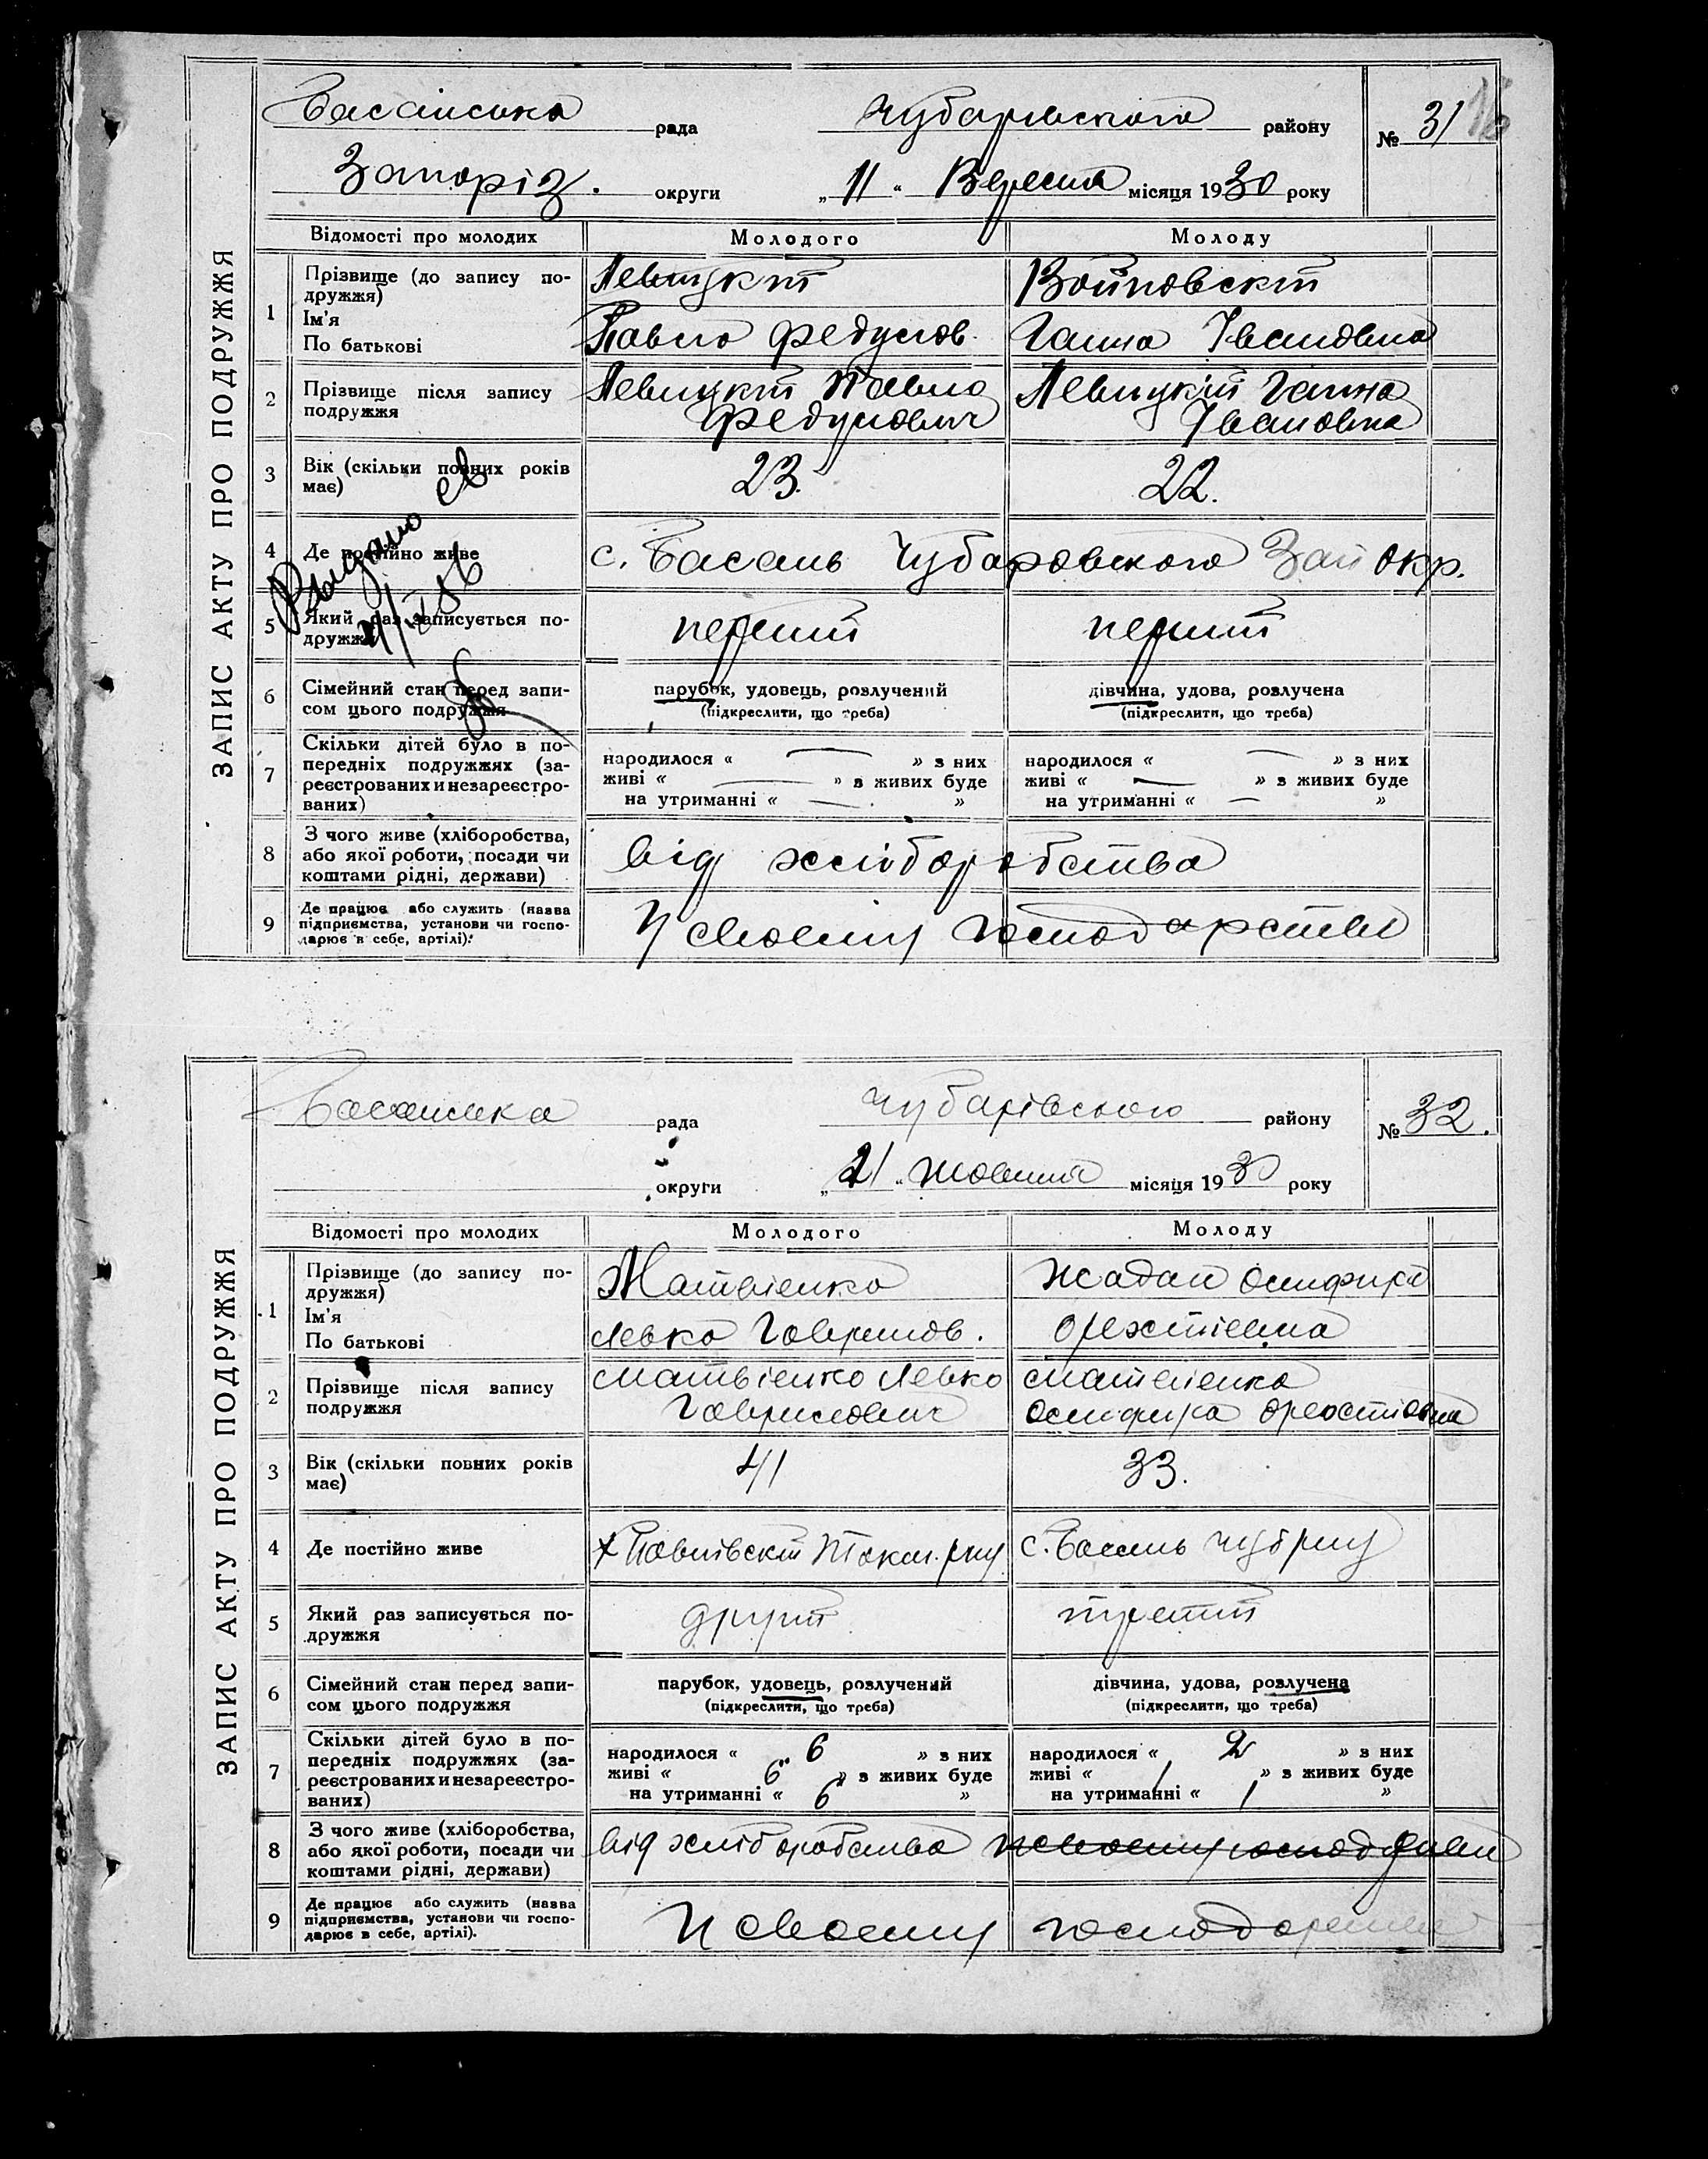 ЗАПИС АКТУ ПРО ПОДРУЖЖЯ
Басанська рада Чубарівського району № 31
Запоріз. округи „11“ Вересня місяця 1930 року
Відомості про молодих Молодого Молоду
1 Прізвище (до запису подружжя) Левицкий Войновский
Ім'я
По батькові Павло Федулов. Ганна Івановна
2 Прізвище після запису подружжя Левицкий Павло Федулович Левицкій Ганна Івановна
3 Вік (скільки повних років має) 23. 22.
4 Де постійно живе с. Басань Чубаровського Зап окр.
5 Який раз записується подружжя перший перший
6 Сімейний стан перед записом цього подружжя парубок, удовець, розлучений дівчина, удова, розлучена
(підкреслити, що треба) (підкреслити, що треба)
7 Скільки дітей було в попередніх подружжях (зареєстрованих и незареєстрованих)
народилося « — » з них народилося « — » з них
живі « — » з живих буде живі « — » з живих буде
на утриманні « — » на утриманні « — »
8 З чого живе (хліборобства, або якої роботи, посади чи коштами рідні, держави) від хліборобства
9 Де працює або служить (назва підприємства, установи чи господарює в себе, артілі). У своєму господарстві
Выдано св
ЗАПИС АКТУ ПРО ПОДРУЖЖЯ
Басанська рада Чубарівського району № 32.
округи „21“ жовтня місяця 1930 року
Відомості про молодих Молодого Молоду
1 Прізвище (до запису подружжя) Матвієнко Жадан
Ім'я
По батькові Левко Гаврилов.
2 Прізвище після запису подружжя Матвієнко Левко Гаврилович Матвієнко
3 Вік (скільки повних років має) 41 33.
4 Де постійно живе х Павлівский Токм. рну с. Басань Чуб рну
5 Який раз записується подружжя другий третій
6 Сімейний стан перед записом цього подружжя парубок, удовець, розлучений дівчина, удова, розлучена
(підкреслити, що треба) (підкреслити, що треба)
7 Скільки дітей було в попередніх подружжях (зареєстрованих и незареєстрованих)
народилося « 6 » з них народилося « 2 » з них
живі « 6 » з живих буде живі « 1 » з живих буде
на утриманні « 6 » на утриманні « 1 »
8 З чого живе (хліборобства, або якої роботи, посади чи коштами рідні, держави) від хліборобства
9 Де працює або служить (назва підприємства, установи чи господарює в себе, артілі). У своєму господарстві